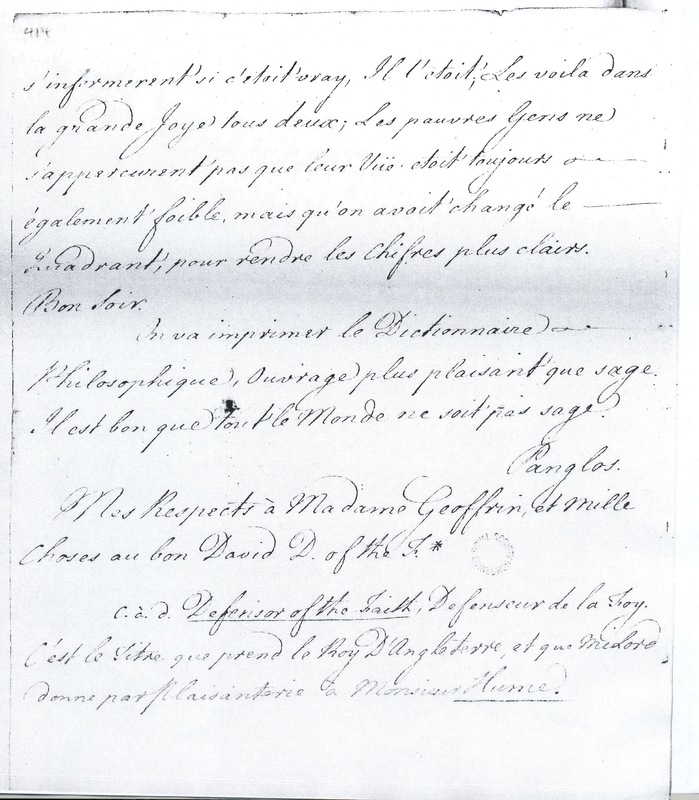 414
s'informerent si c'étoit vray, Il l'étoit; Les voila dans
la grande Joye tous deux; Les pauvres Gens ne
s'apperçurent pas que leur Vüe étoit toujours
également foible, mais qu'on avoit changé le
Quadrant, pour rendre les Chifres plus clairs.
Bon Soir.
On va imprimer le Dictionnaire
Philosophique, Ouvrage plus plaisant que sage.
Il est bon que tout le Monde ne soit pas sage.
Panglos.
Mes Respects à Madame Geoffrin, et mille
Choses au bon David D. of the F.*
c. à. d. Defensor of the Faith, Defenseur de la Foy.
C'est le Titre que prend le Roy D'Angleterre, et que Milord
donne par Plaisanterie à Monsieur Hume.